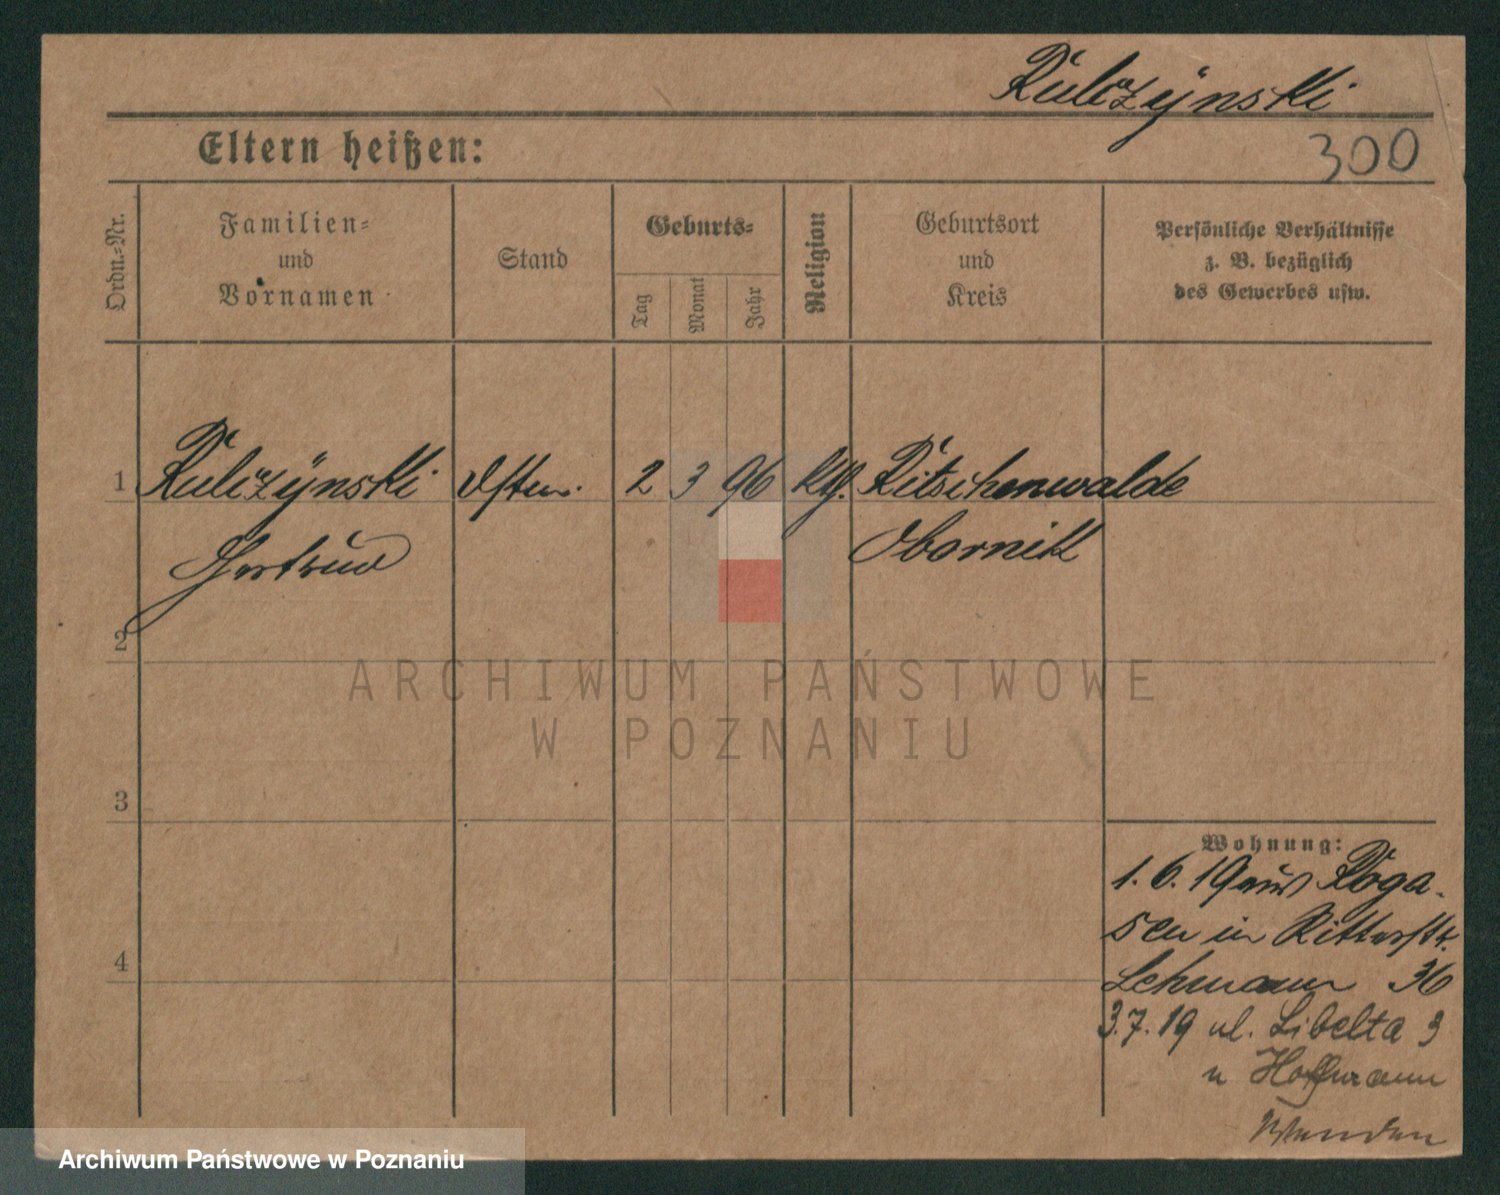 Kulczynski
300
Eltern heißen:
Ordn.-Nr.
Familien-
und
Vornamen
Stand
Geburts-
Tag
Monat
Jahr
Religion
Geburtsort
und
Kreis
Persönliche Verhältnisse
z. B. bezüglich
des Gewerbes usw.
1 Kulczynski 2 3 96 kth. Ritschenwalde
Gertrud Obornik
2
3
4
Wohnung:
1. 6. 19 aus Roga-
sen in Ritterstr.
Lehmann 36
3.7.19 ul. Libelta 3
u Hoffmann
Wenden
ARCHIWUM PAŃSTWOWE
W POZNANIU
Archiwum Państwowe w Poznaniu